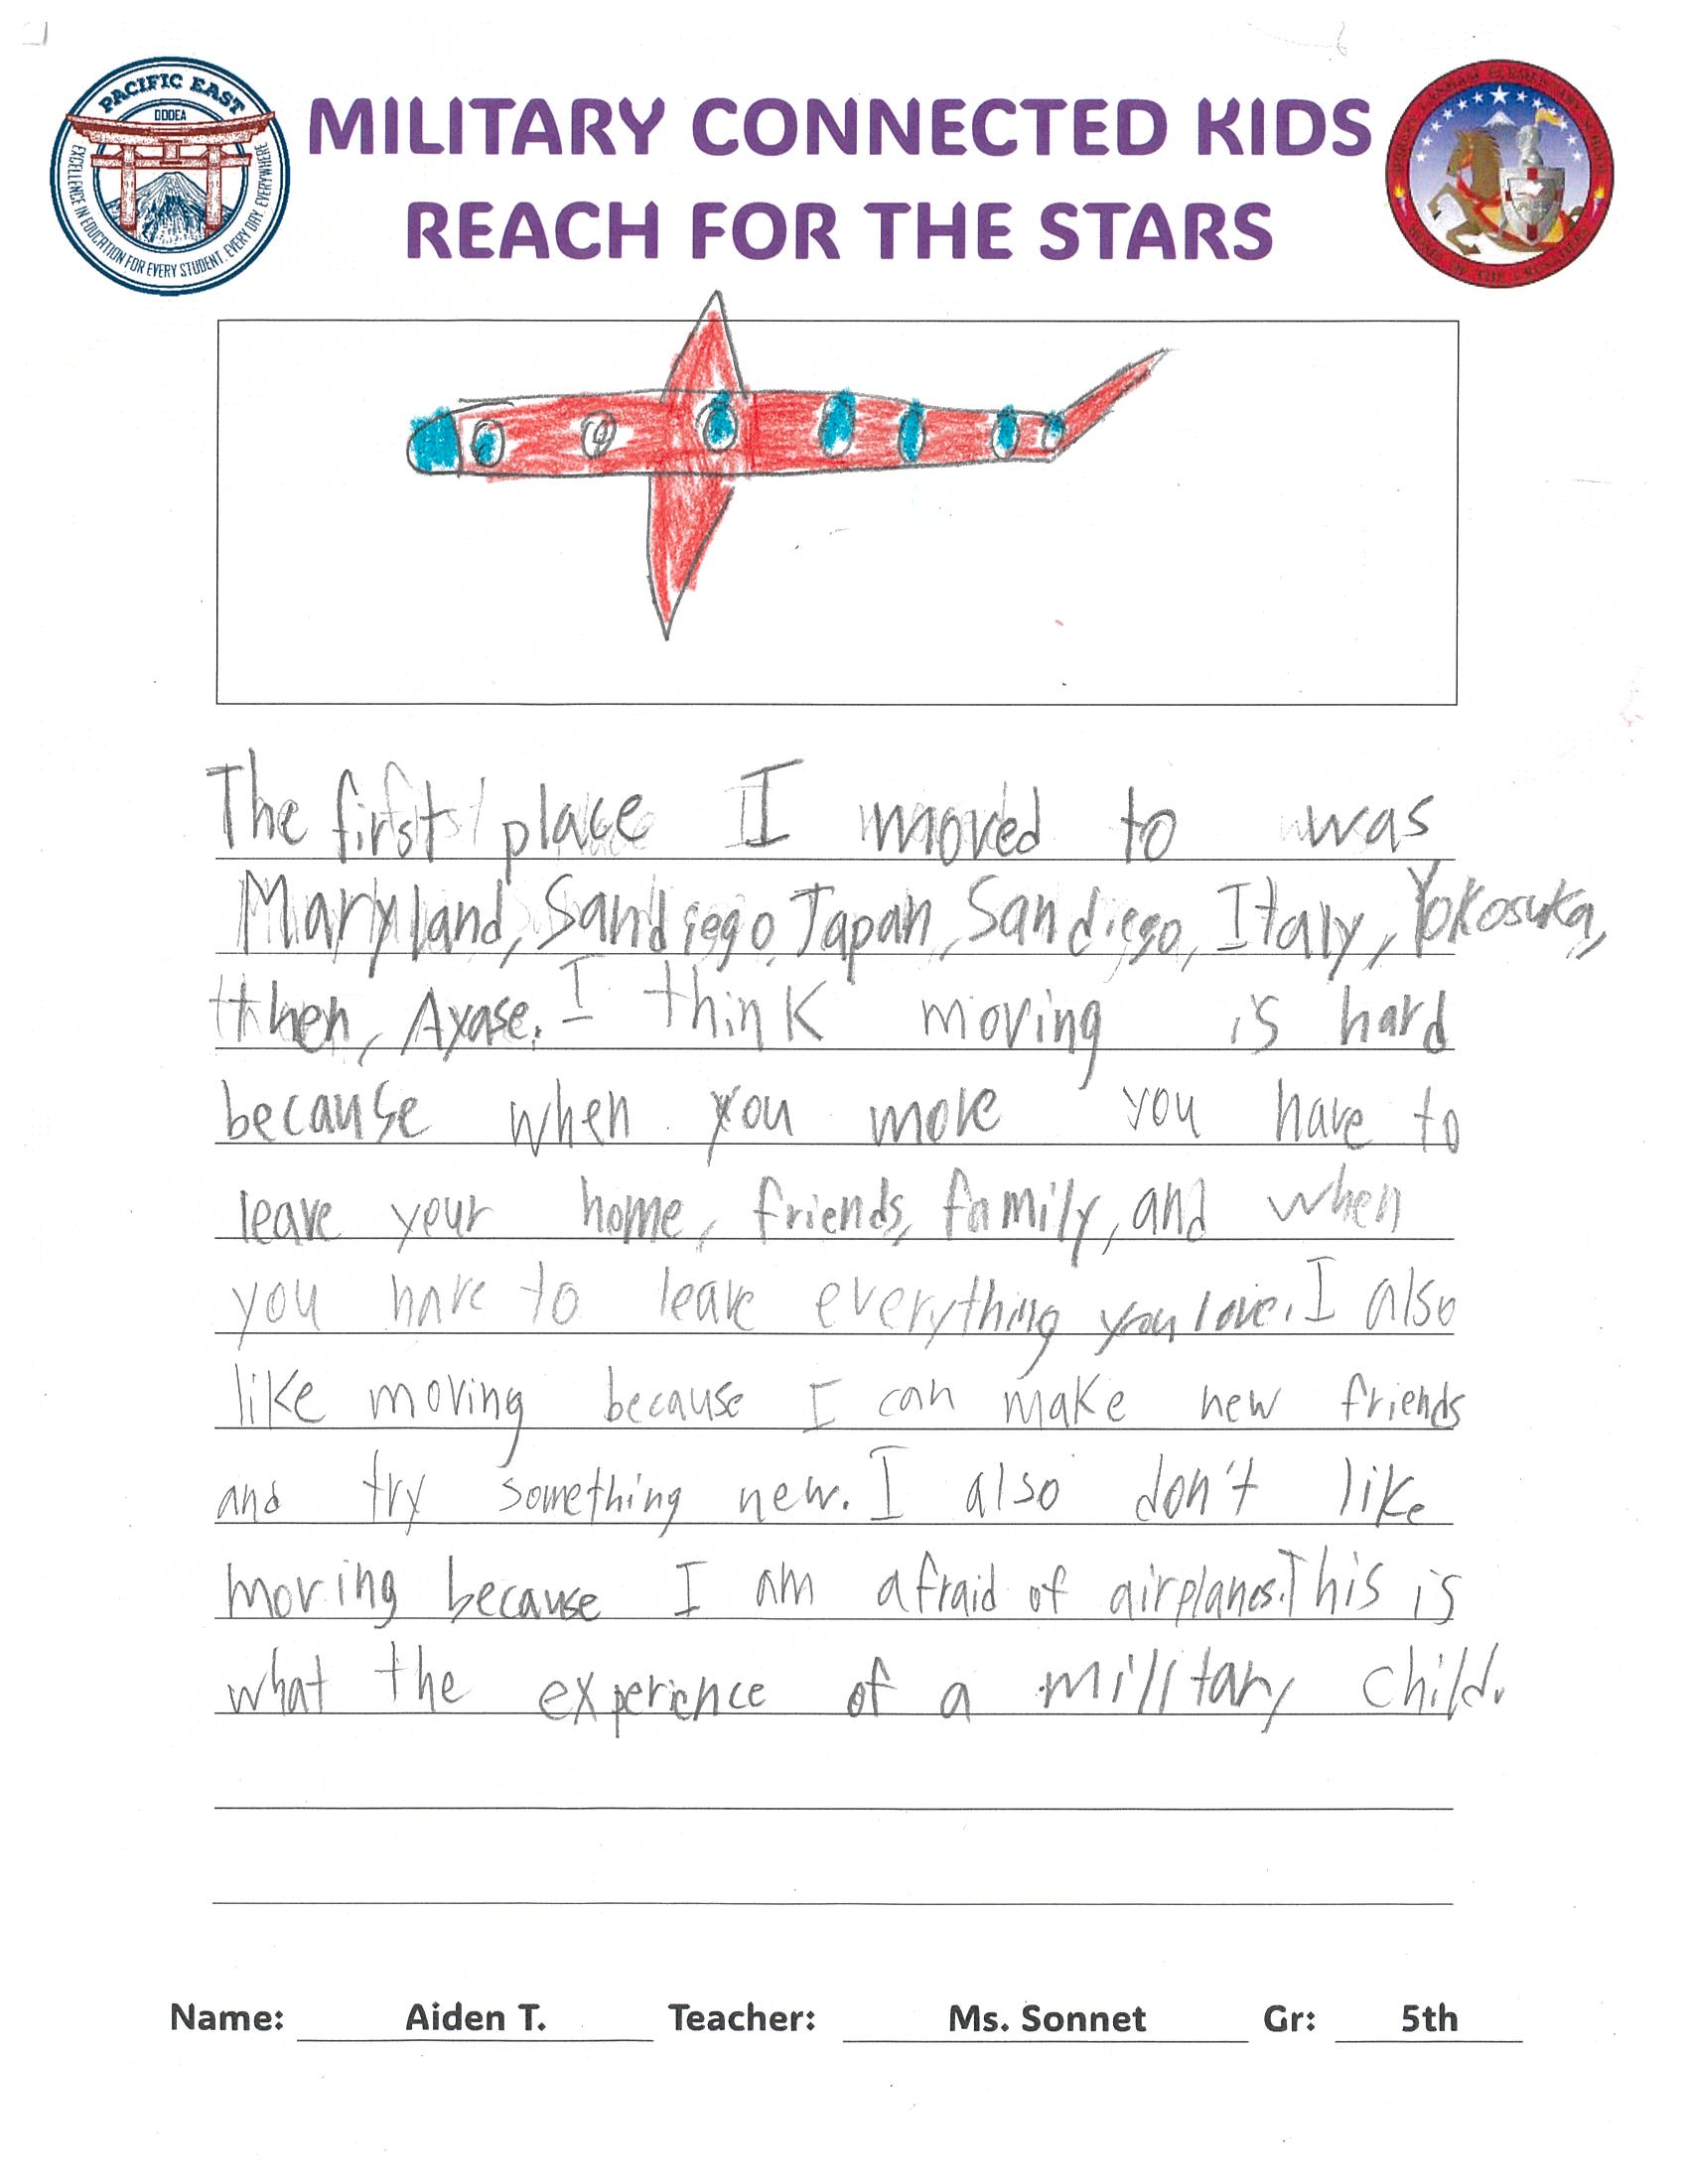 PACIFIC EAST
DODEA
EXCELLENCE IN EDUCATION FOR EVERY STUDENT, EVERY DAY, EVERYWHERE
MILITARY CONNECTED KIDS
REACH FOR THE STARS
The first place I moved to was
Maryland, Sandiego, Japan, San diego, Italy, Yokosuka,
then, Ayase. I think moving is hard
because when you move you have to
leave your home, friends, family, and when
you have to leave everything you love. I also
like moving because I can make new friends
and try something new. I also don't like
moving because I am afraid of airplanes. This is
what the experience of a military child.
Name: Aiden T. Teacher: Ms. Sonnet Gr: 5th